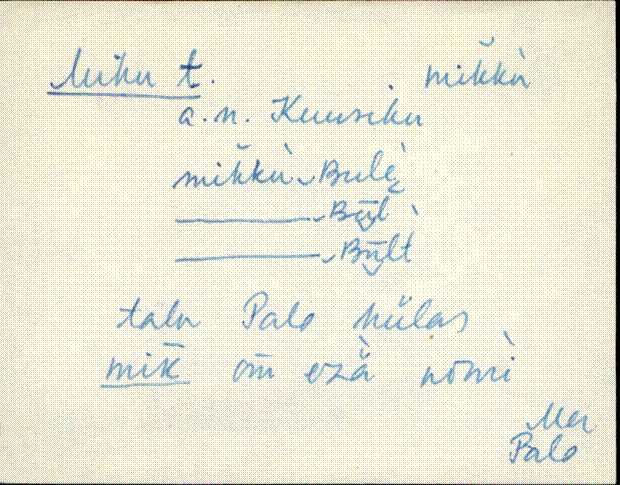 Miku t. mik̆kù
a.n. Kuusiku
mik̆kù‿Bulè̬
———‿Būl̀
———‿Būlt
talu Palo külas
mik̄ om ezä̀ nömì
Mer
Palo